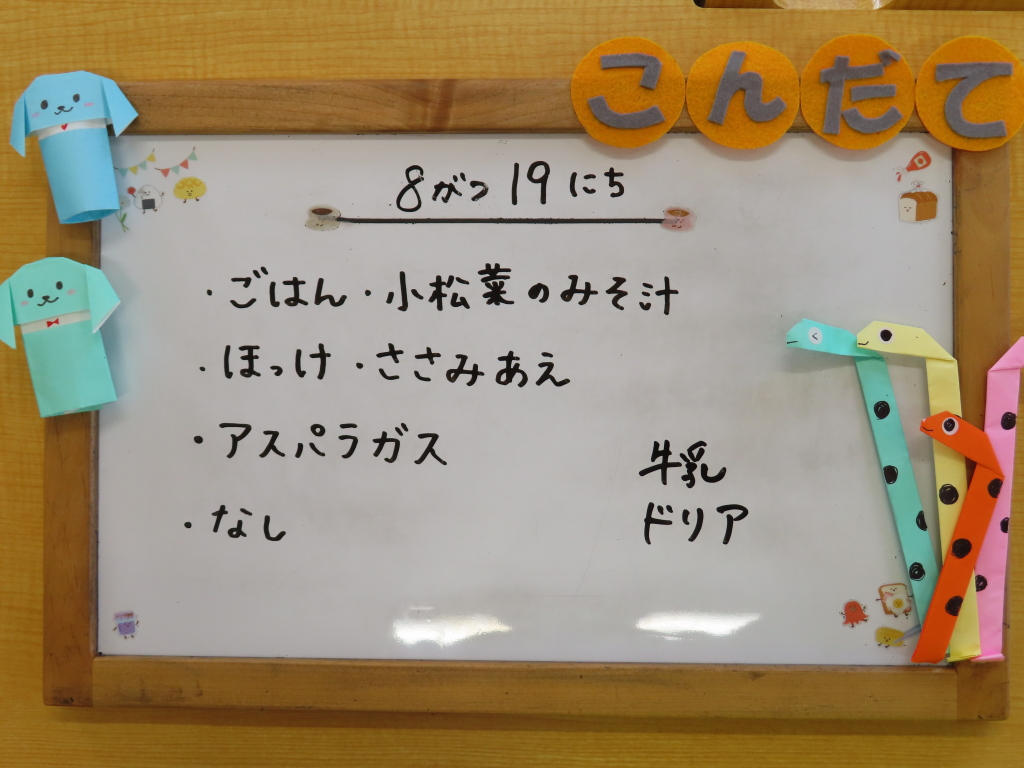 こんだて
8がつ 19にち
・ごはん・小松菜のみそ汁
・ほっけ・ささみあえ
・アスパラガス
・なし
牛乳
ドリア